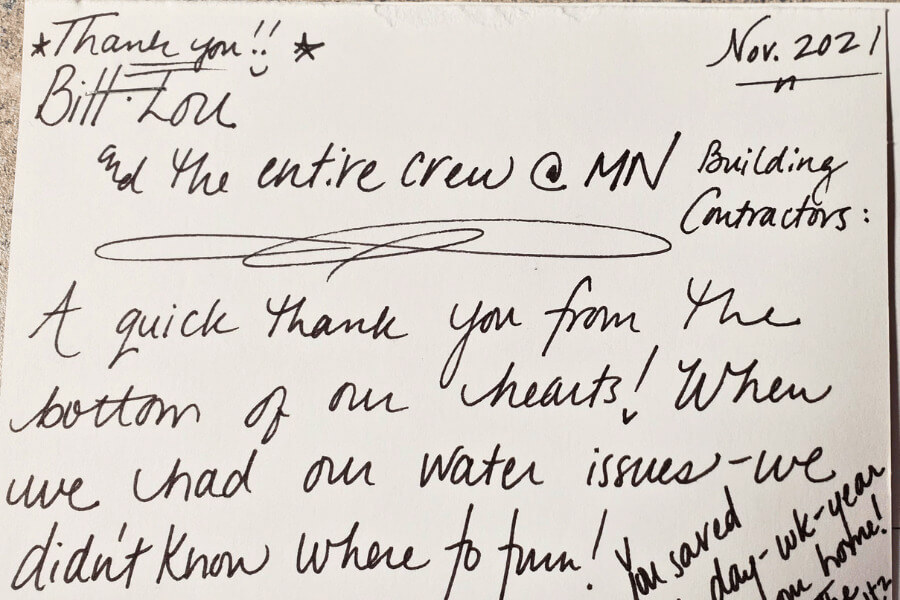 ★Thank you!! ★
Nov. 2021
Bill · Lou
and the entire crew @ MN Building
Contractors:
A quick thank you from the
bottom of our hearts! When
we had our water issues - we
didn't know where to turn!
You saved
day-wk-year
our home!
The
it?